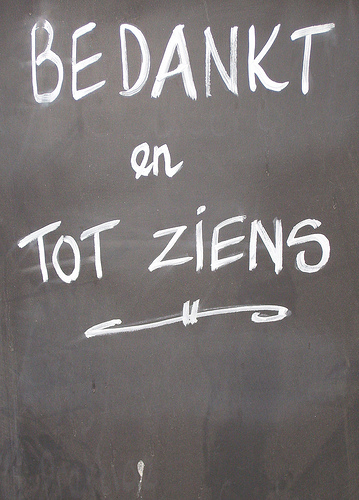 BEDANKT
en
TOT ZiENS